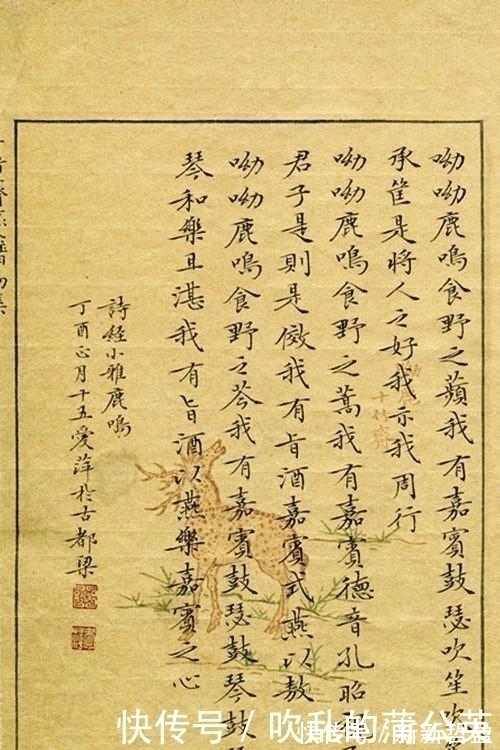 呦呦鹿鳴食野之蘋我有嘉賓鼓瑟吹笙吹
承筐是將人之好我示我周行
呦呦鹿鳴食野之蒿我有嘉賓德音孔昭
君子是則是傚我有旨酒嘉賓式燕以敖
呦呦鹿鳴食野之芩我有嘉賓鼓瑟鼓琴鼓
琴和樂且湛我有旨酒以燕樂嘉賓之心
詩經小雅鹿鳴
丁酉正月十五愛萍於古都梁
十竹齋
快传号 / 吹乱的蒲公英
快传号/新新哲